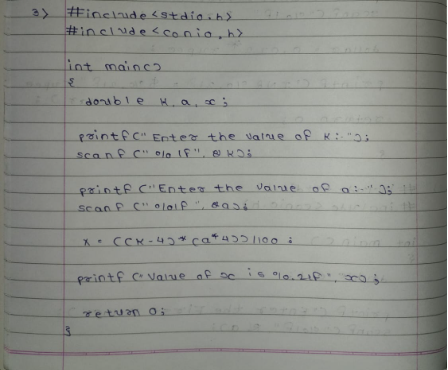 3) #include<stdio.h>
#include<conio.h>
int main()
{
double K, a, x;
printf(" Enter the value of K:-");
scanf (" %lf", &K);
printf ("Enter the value of a:-");
scanf (" %lf", &a);
x = ((K-4)*(a*4))/100;
printf ("Value of x is %.2lf", x);
return 0;
}